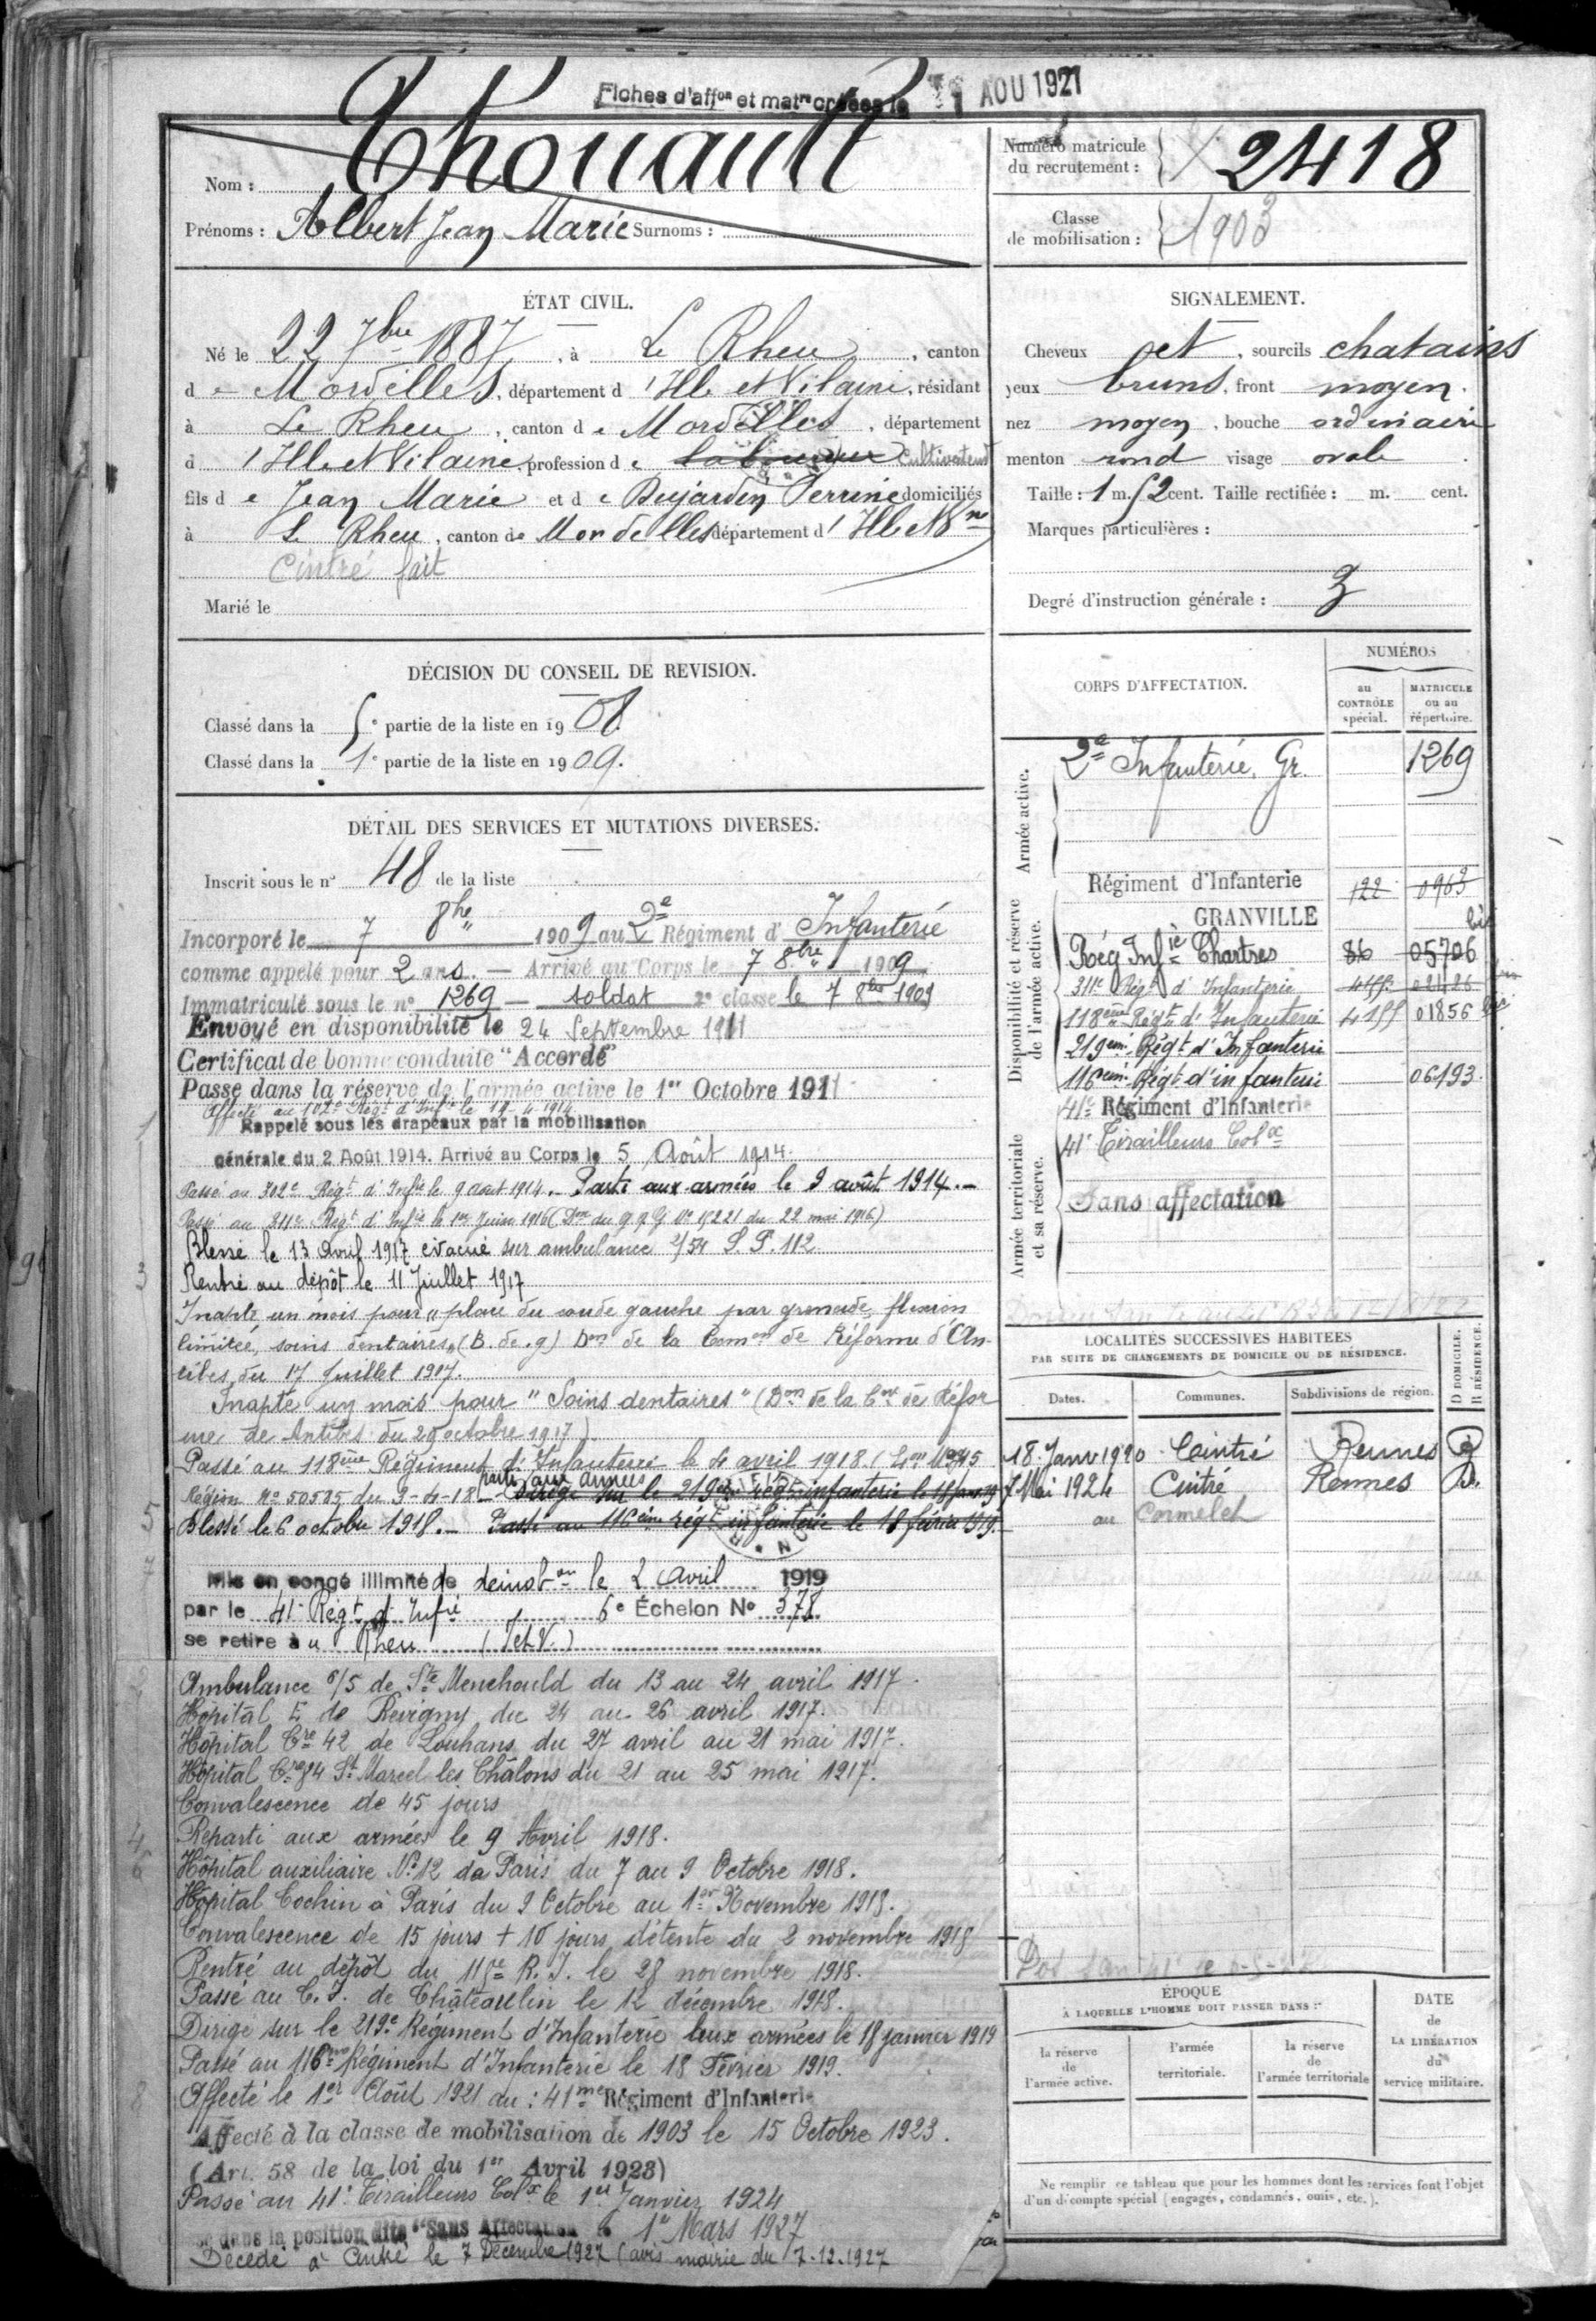 Fiches d'affon et matre créées le 1 AOU 1921
Nom : Thouault
Prénoms : Albert Jean Marie Surnoms :
Numéro matricule du recrutement : 2418
Classe de mobilisation : 1903
ÉTAT CIVIL.
Né le 22 7bre 1887, à Le Rheu, canton
de Mordelles, département d'Ille et Vilaine, résidant
à Le Rheu, canton de Mordelles, département
d'Ille et Vilaine, profession de laboureur Cultivateur
fils de Jean Marie et de Dujardin Perrine domiciliés
à Le Rheu, canton de Mordelles département d'Ille et Vne
Cintré fait
Marié le
SIGNALEMENT.
Cheveux et, sourcils chatains
yeux bruns, front moyen.
nez moyen, bouche ordinaire
menton rond visage ovale
Taille : 1 m. 52 cent. Taille rectifiée : m. cent.
Marques particulières :
Degré d'instruction générale : 3
DÉCISION DU CONSEIL DE REVISION.
Classé dans la 5e partie de la liste en 1908.
Classé dans la 1e partie de la liste en 1909.
DÉTAIL DES SERVICES ET MUTATIONS DIVERSES.
Inscrit sous le no 48 de la liste
Incorporé le 7 8bre 1909 au 2e Régiment d'Infanterie
comme appelé pour 2 ans. — Arrivé au Corps le 7 8bre 1909
Immatriculé sous le no 1269 — soldat 2e classe le 7 8bre 1909
Envoyé en disponibilité le 24 Septembre 1911
Certificat de bonne conduite "Accordé"
Passé dans la réserve de l'armée active le 1er Octobre 1911
Affecté au 102e Régt d'Infie le 19-4-1914
Rappelé sous les drapeaux par la mobilisation
générale du 2 Août 1914. Arrivé au Corps le 5 Août 1914.
Passé au 302e Régt d'Infie le 9 août 1914. — Parti aux armées le 9 août 1914. —
Passé au 311e Régt d'Infie le 1er Juin 1916 (Don du G.Q.G No 15221 du 22 mai 1916)
Blessé le 13 Avril 1917 évacué sur ambulance 2/54 S.P. 112
Rentré au dépôt le 11 Juillet 1917
Inapte un mois pour "plaie du coude gauche par grenade, flexion
limitée, soins dentaires" (B. de g) Don de la Comon de Réforme d'An-
tibes du 17 Juillet 1917.
Inapte un mois pour "Soins dentaires" (Don de la Con de Réfor
me de Antibes du 25 octobre 1917)
Passé au 118ème Régiment d'Infanterie le 4 avril 1918. (
Région No 50585 du 3-4-18 — Dirigé sur le 219ème régt infanterie le 18 janv 19
parti aux armées
Blessé le 6 octobre 1918. — Passé au 116ème régt infanterie le 18 février 1919.
Mis en congé illimité de démobon le 2 Avril 1919
par le 41e Régt d'Infie 6e Échelon No 378
se retire à u Rheu (I et V.)
Ambulance 6/5 de Ste Menehould du 13 au 24 avril 1917.
Hôpital E de Revigny du 24 au 26 avril 1917.
Hôpital Cre 42 de Louhans du 27 avril au 21 mai 1917.
Hôpital Cre 84 St Marcel les Châlons du 21 au 25 mai 1917.
Convalescence de 45 jours
Reparti aux armées le 9 Avril 1918.
Hôpital auxiliaire No 12 de Paris du 7 au 9 Octobre 1918.
Hôpital Cochin à Paris du 9 Octobre au 1er Novembre 1918.
Convalescence de 15 jours + 10 jours détente du 2 novembre 1918
Rentré au dépôt du 118e R.I. le 28 novembre 1918.
Passé au C.I. de Châteaulin le 12 décembre 1918.
Dirigé sur le 219e Régiment d'Infanterie aux armées le 18 janvier 1919
Passé au 116me Régiment d'Infanterie le 18 Février 1919.
Affecté le 1er Août 1921 au : 41me Régiment d'Infanterie
Affecté à la classe de mobilisation de 1903 le 15 Octobre 1923.
(Art. 58 de la loi du 1er Avril 1923)
Passé au 41e Tirailleurs Colx le 1er Janvier 1924
dans la position dite "Sans Affectation le 1er Mars 1927
Décédé à Cintré le 7 Décembre 1927 (avis mairie du 7.12.1927
CORPS D'AFFECTATION.
NUMÉROS
au CONTRÔLE spécial.
MATRICULE ou au répertoire.
Armée active.
2e Infanterie, Gr. 1269
Disponibilité et réserve de l'armée active.
Régiment d'Infanterie 122 0963
GRANVILLE
Rég Infie Chartres 86 05706 bis
311e Régt d'Infanterie
118ème Régt d'Infanterie 4155 01856
219eme Régt d'Infanterie
116eme Régt d'infanterie 06193
41e Régiment d'Infanterie
Armée territoriale et sa réserve.
41e Tirailleurs Colx
Sans affectation
LOCALITÉS SUCCESSIVES HABITÉES
PAR SUITE DE CHANGEMENTS DE DOMICILE OU DE RÉSIDENCE.
Dates. Communes. Subdivisions de région. D DOMICILE. R RÉSIDENCE.
18 Janv 1920 Cintré Rennes
7 Mai 1924 Cintré Rennes D.
au Cormelet
ÉPOQUE
À LAQUELLE L'HOMME DOIT PASSER DANS :
la réserve de l'armée active.
l'armée territoriale.
la réserve de l'armée territoriale
DATE de LA LIBÉRATION du service militaire.
Ne remplir ce tableau que pour les hommes dont les services font l'objet
d'un décompte spécial (engagés, condamnés, omis, etc.).